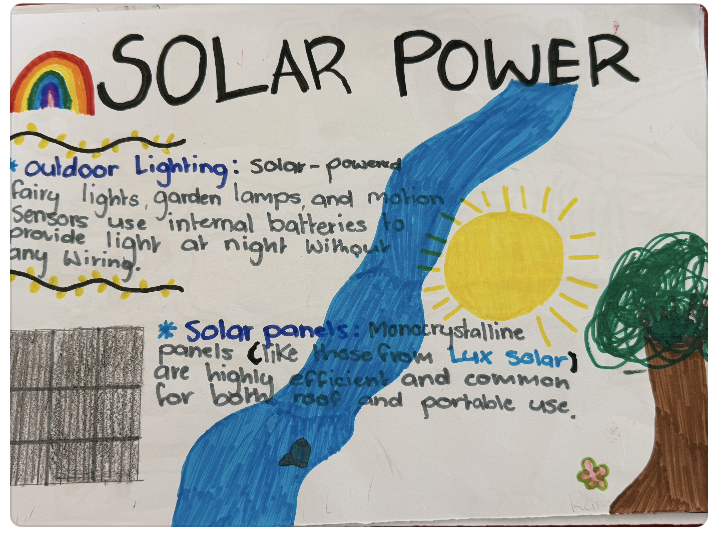 SOLAR POWER
* Outdoor Lighting: Solar-powered
fairy lights, garden lamps, and motion
Sensors use internal batteries to
provide light at night without
any wiring.
* Solar panels: Monocrystalline
panels (like those from Lux Solar)
are highly efficient and common
for both roof and portable use.